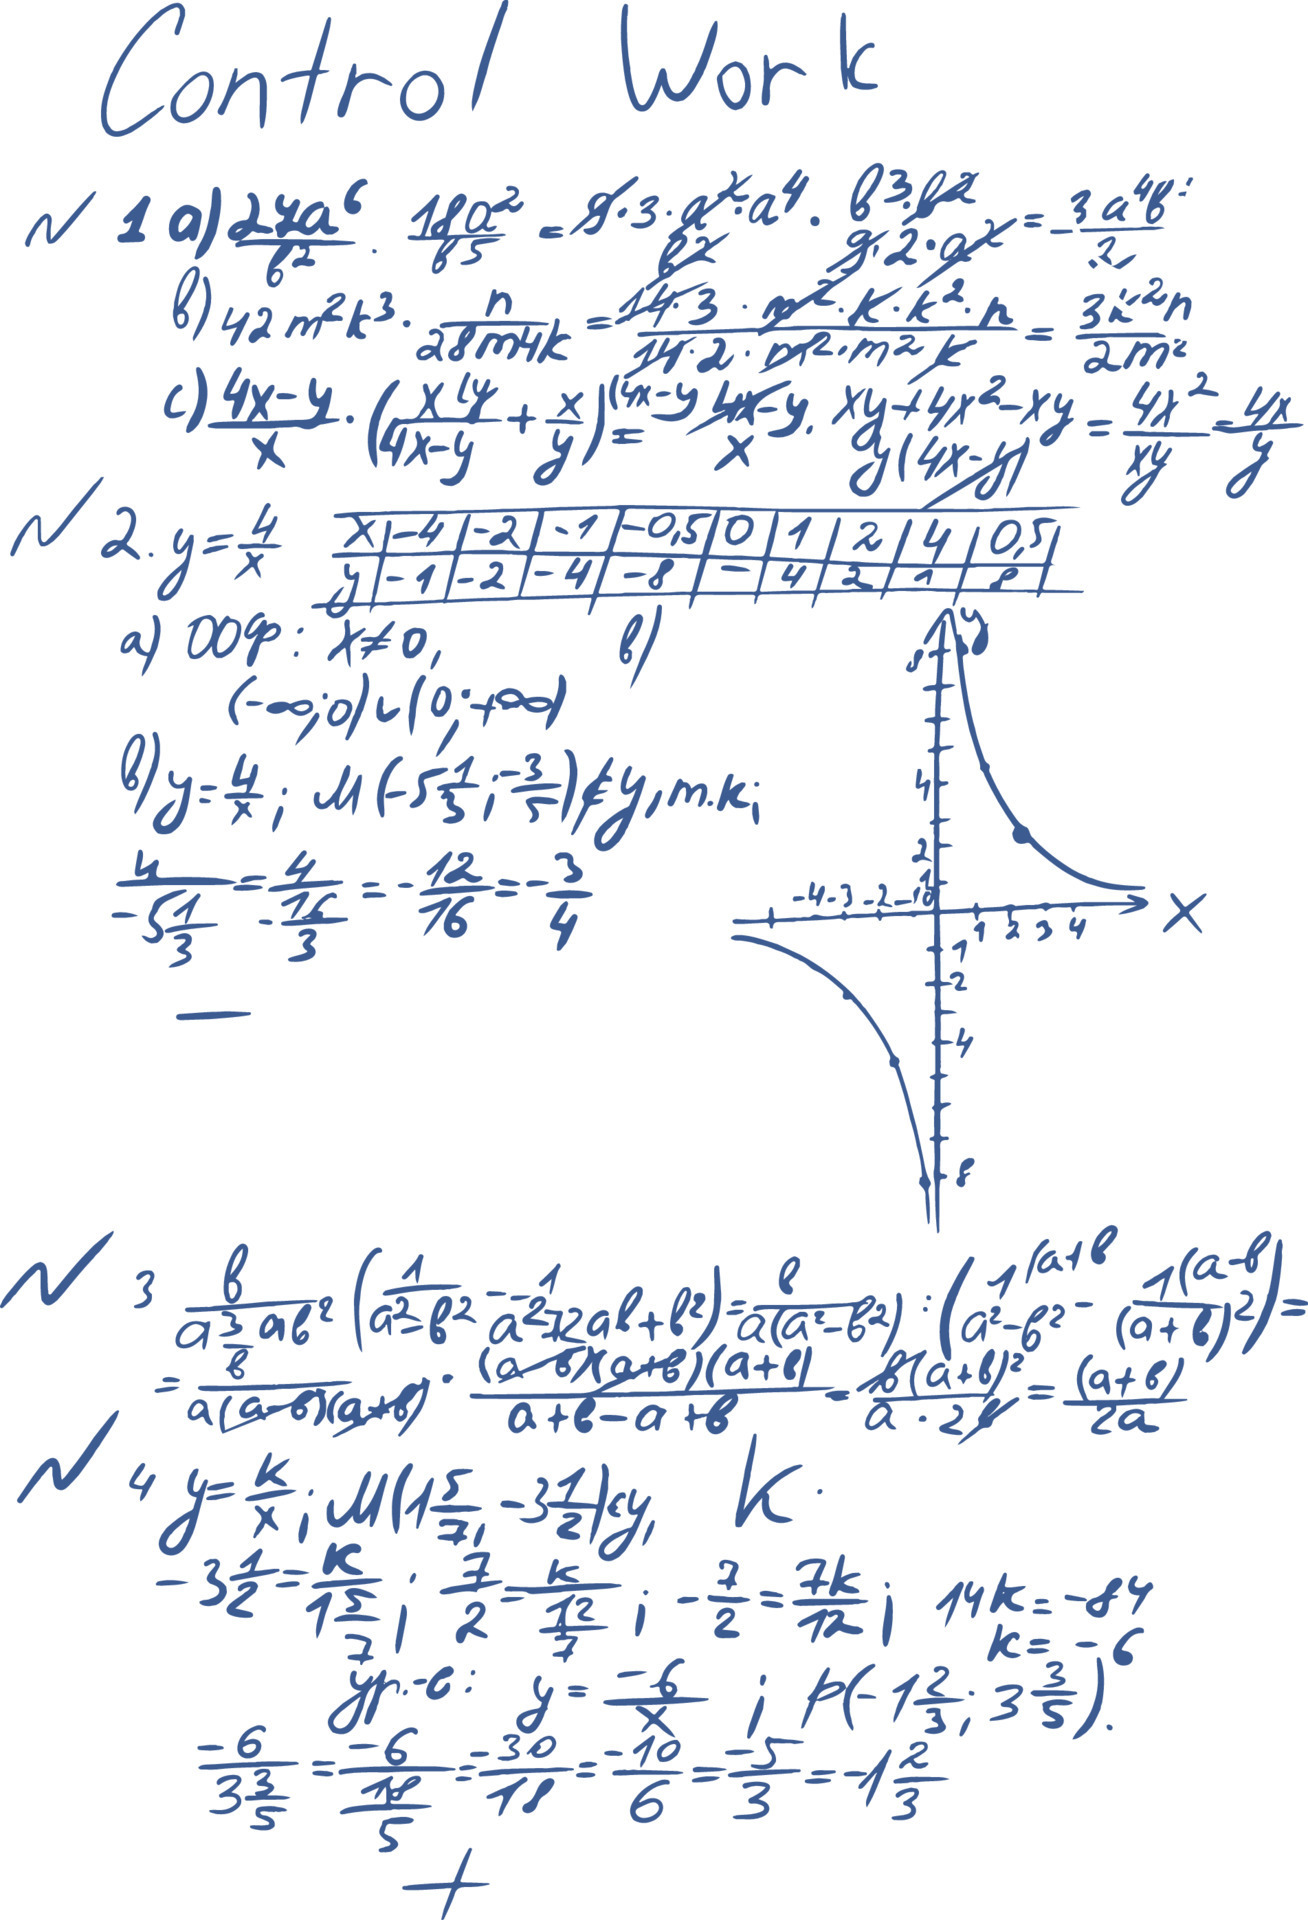 Control Work
N 1 a) 27a⁶/b² · 18a²/b⁵ = 9·3·a²·a⁴/b² · b³·b²/9·2·a² = 3a⁴b³/2
b) 42m²k³ · n/28m4k = 14·3·m²·k·k²·n/14·2·m²·m²k = 3k²n/2m²
c) 4x-y/x · (x y/4x-y + x/y) (4x-y = 4x-y/x · xy+4x²-xy/y(4x-y) = 4x²/xy = 4x/y
N 2. y = 4/x
x -4 -2 -1 -0,5 0 1 2 4 0,5
y -1 -2 -4 -8 - 4 2 1 8
a) ООф: x≠0, b)
(-∞;0)∪(0;+∞)
b) y = 4/x; M(-5 1/3; -3/5) ∉ y, т.к;
4/-5 1/3 = 4/-16/3 = -12/16 = -3/4
—
y
8
4
2
1
-4 -3 -2 -1 0 x
1 2 3 4
1
2
4
8
N 3 b/a3ab² (1/a²-b² - 1/a²+2ab+b²) = b/a(a²-b²) : (1(a+b/a²-b² - 1(a-b/(a+b)²) =
= b/a(a-b)(a+b) · (a-b)(a+b)(a+b)/a+b-a+b = b(a+b)²/a·2b = (a+b)/2a
N 4 y = k/x; M(1 5/7; -3 1/2) ∈ y, k.
-3 1/2 = k/1 5/7; 7/2 = k/12/7; -7/2 = 7k/12; 14k = -84
k = -6
ур.-е: y = -6/x; P(-1 2/3; 3 3/5).
-6/3 3/5 = -6/18/5 = -30/18 = -10/6 = -5/3 = -1 2/3
+